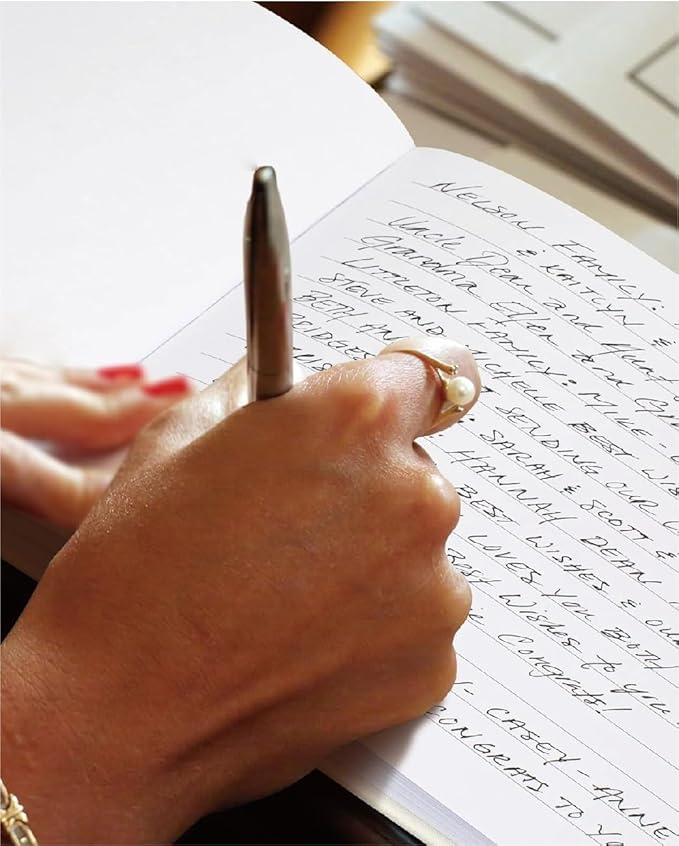 NELSON FAMILY:
& KAITLYN &
Uncle Dean and Aunt
Grandma Ellen and
LITTLETON FAMILY: MIKE -
STEVE AND MICHELLE BEST WIS
BETH
SENDING OUR
SARAH & SCOTT &
HANNAH DEAN
BEST WISHES & OUR
LOVES YOU BOTH
Best Wishes to you
Congrats!
- CASEY - ANNE
CONGRATS TO YO